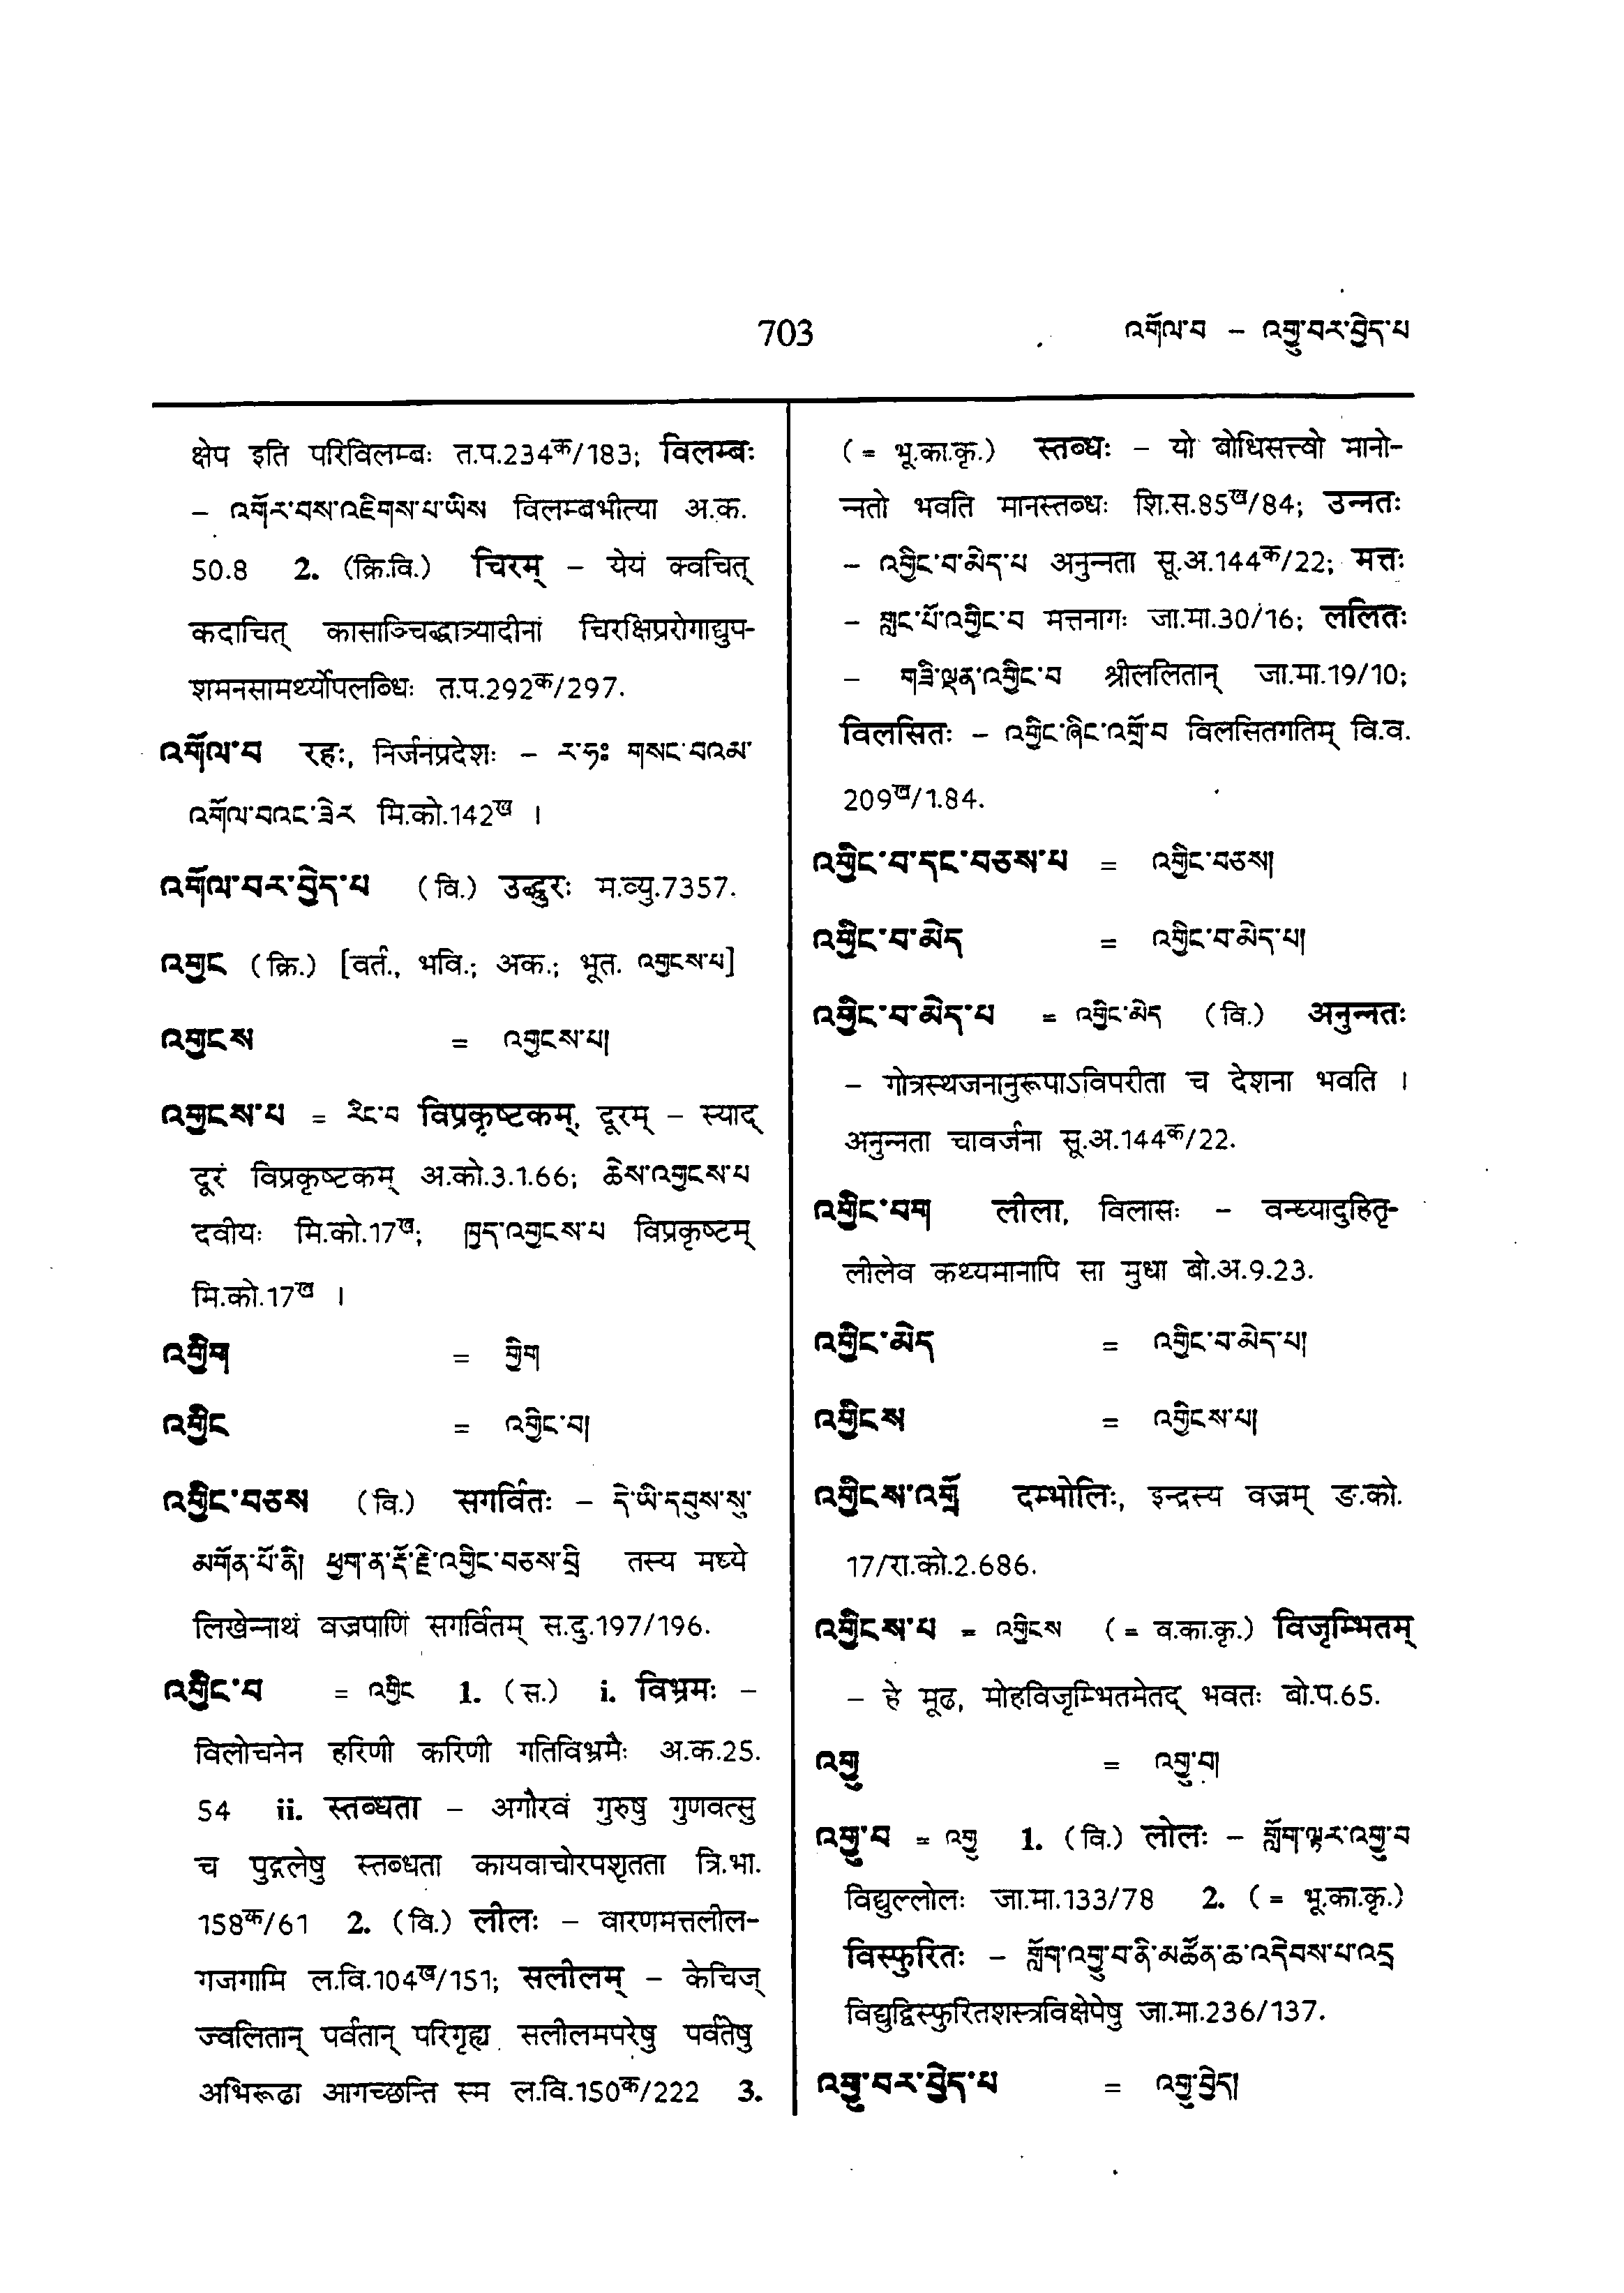 703
འགོལ་བ – འགྱུ་བར་བྱེད་པ
क्षेप इति परिविलम्बः त.प.234क/183; विलम्बः
– འགོར་བས་འཇིགས་པ་ཡིས विलम्बभीत्या अ.क.
50.8 2. (क्रि.वि.) चिरम् – येयं क्वचित्
कदाचित् कासाञ्चिद्धात्र्यादीनां चिरक्षिप्ररोगाद्युप-
शमनसामर्थ्योपलब्धिः त.प.292क/297.
འགོལ་བ रहः, निर्जनप्रदेशः – ར་ཧཿ གསང་བའམ་
འགོལ་བའང་ཟེར मि.को.142ख ।
འགོལ་བར་བྱེད་པ (वि.) उद्धुरः म.व्यु.7357.
འགྱང (क्रि.) [वर्त., भवि.; अक.; भूत. འགྱངས་པ]
འགྱངས = འགྱངས་པ།
འགྱངས་པ = རིང་བ विप्रकृष्टकम्, दूरम् – स्याद्
दूरं विप्रकृष्टकम् अ.को.3.1.66; ཆེས་འགྱངས་པ
दवीयः मि.को.17ख; ཁྱད་འགྱངས་པ विप्रकृष्टम्
मि.को.17ख ।
འགྱིག = གྱིག
འགྱིང = འགྱིང་བ།
འགྱིང་བཅས (वि.) सगर्वितः – དེ་ཡི་དབུས་སུ་
མགོན་པོ་ནི། ཕྱག་ན་རྡོ་རྗེ་འགྱིང་བཅས་བྲི तस्य मध्ये
लिखेन्नाथं वज्रपाणिं सगर्वितम् स.दु.197/196.
འགྱིང་བ = འགྱིང 1. (स.) i. विभ्रमः –
विलोचनेन हरिणी करिणी गतिविभ्रमैः अ.क.25.
54 ii. स्तब्धता – अगौरवं गुरुषु गुणवत्सु
च पुद्गलेषु स्तब्धता कायवाचोरपशृतता त्रि.भा.
158क/61 2. (वि.) लीलः – वारणमत्तलील-
गजगामि ल.वि.104ख/151; सलीलम् – केचिज्
ज्वलितान् पर्वतान् परिगृह्य सलीलमपरेषु पर्वतेषु
अभिरूढा आगच्छन्ति स्म ल.वि.150क/222 3.
(= भू.का.कृ.) स्तब्धः – यो बोधिसत्त्वो मानो-
न्नतो भवति मानस्तब्धः शि.स.85ख/84; उन्नतः
– འགྱིང་བ་མེད་པ अनुन्नता सू.अ.144क/22; मत्तः
– གླང་པོ་འགྱིང་བ मत्तनागः जा.मा.30/16; ललितः
– གཟི་ལྡན་འགྱིང་བ श्रीललितान् जा.मा.19/10;
विलसितः – འགྱིང་ཞིང་འགྲོ་བ विलसितगतिम् वि.व.
209ख/1.84.
འགྱིང་བ་དང་བཅས་པ = འགྱིང་བཅས།
འགྱིང་བ་མེད = འགྱིང་བ་མེད་པ།
འགྱིང་བ་མེད་པ = འགྱིང་མེད (वि.) अनुन्नतः
– गोत्रस्थजनानुरूपाऽविपरीता च देशना भवति ।
अनुन्नता चावर्जना सू.अ.144क/22.
འགྱིང་བག लीला, विलासः – वन्ध्यादुहितृ-
लीलेव कथ्यमानापि सा मुधा बो.अ.9.23.
འགྱིང་མེད = འགྱིང་བ་མེད་པ།
འགྱིངས = འགྱིངས་པ།
འགྱིངས་འགྲོ दम्भोलिः, इन्द्रस्य वज्रम् ङ.को.
17/रा.को.2.686.
འགྱིངས་པ = འགྱིངས (= व.का.कृ.) विजृम्भितम्
– हे मूढ, मोहविजृम्भितमेतद् भवतः बो.प.65.
འགྱུ = འགྱུ་བ།
འགྱུ་བ = འགྱུ 1. (वि.) लोलः – གློག་ལྟར་འགྱུ་བ
विद्युल्लोलः जा.मा.133/78 2. (= भू.का.कृ.)
विस्फुरितः – གློག་འགྱུ་བ་ནི་མཚོན་ཆ་འདེབས་པ་འདྲ
विद्युद्विस्फुरितशस्त्रविक्षेपेषु जा.मा.236/137.
འགྱུ་བར་བྱེད་པ = འགྱུ་བྱེད།